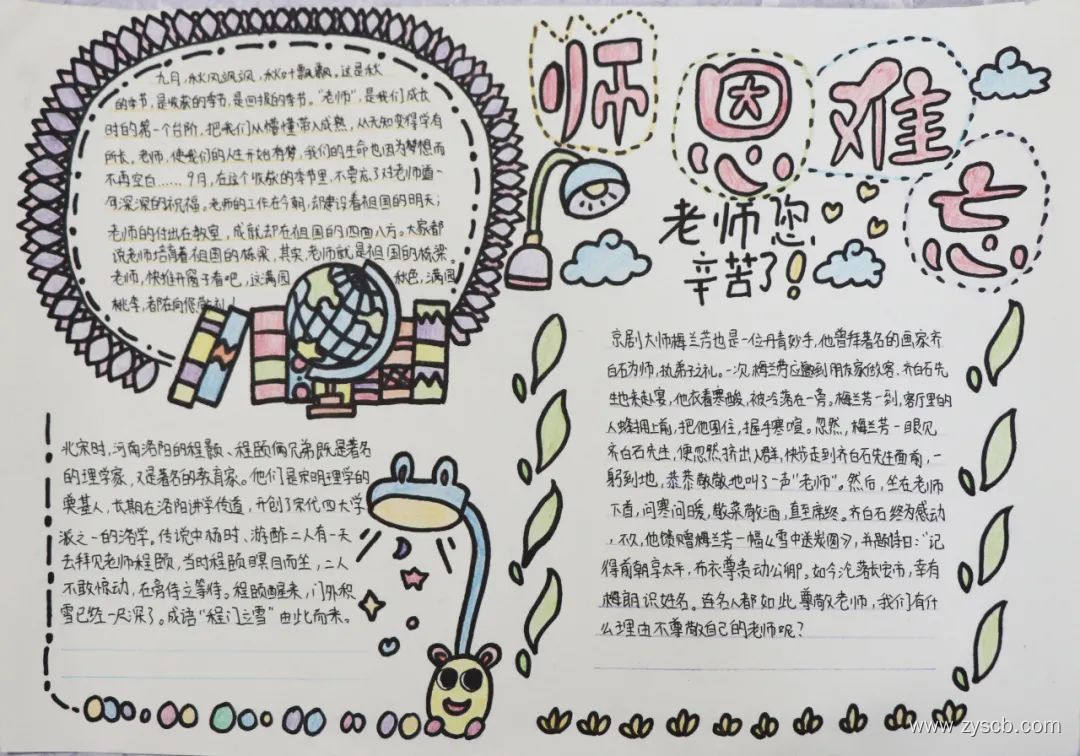 师恩难忘
老师您
辛苦了！
九月，秋风飒飒，秋叶飘飘。这是秋
的季节，是收获的季节，是回报的季节。“老师”，是我们成长
时的第一个台阶，把我们从懵懂带入成熟，从无知变得学有
所长。老师，使我们的人生开始有梦，我们的生命也因为梦想而
不再空白……9月，在这个收获的季节里，不要忘了对老师道一
声深深的祝福。老师的工作在今朝，却建设着祖国的明天；
老师的付出在教室，成就却在祖国的四面八方。大家都
说老师培育着祖国的栋梁，其实，老师就是祖国的栋梁。
老师，快推开窗子看吧，这满园秋色，满园
桃李，都在向您敬礼！
北宋时，河南洛阳的程颢、程颐俩兄弟既是著名
的理学家，又是著名的教育家。他们是宋明理学的
奠基人，长期在洛阳讲学传道，开创了宋代四大学
派之一的洛学。传说中杨时、游酢二人有一天
去拜见老师程颐，当时程颐瞑目而坐，二人
不敢惊动，在旁侍立等待。程颐醒来，门外积
雪已经一尺深了。成语“程门立雪”由此而来。
京剧大师梅兰芳也是一位丹青妙手，他曾拜著名的画家齐
白石为师，执弟子礼。一次，梅兰芳应邀到朋友家做客，齐白石先
生也来赴宴，他衣着寒酸，被冷落在一旁。梅兰芳一到，客厅里的
人蜂拥上前，把他围住，握手寒喧。忽然，梅兰芳一眼见
齐白石先生，便忽然挤出人群，快步走到齐白石先生面前，一
躬到地，恭恭敬敬地叫了一声“老师”。然后，坐在老师
下首，问寒问暖，敬菜敬酒，直至席终。齐白石终为感动
，不久，他馈赠梅兰芳一幅《雪中送炭图》，并题诗曰：“记
得前朝享太平，布衣尊贵动公卿。如今沦落长安市，幸有
梅郎识姓名。连名人都如此尊敬老师，我们有什
么理由不尊敬自己的老师呢？
www.zyscb.com